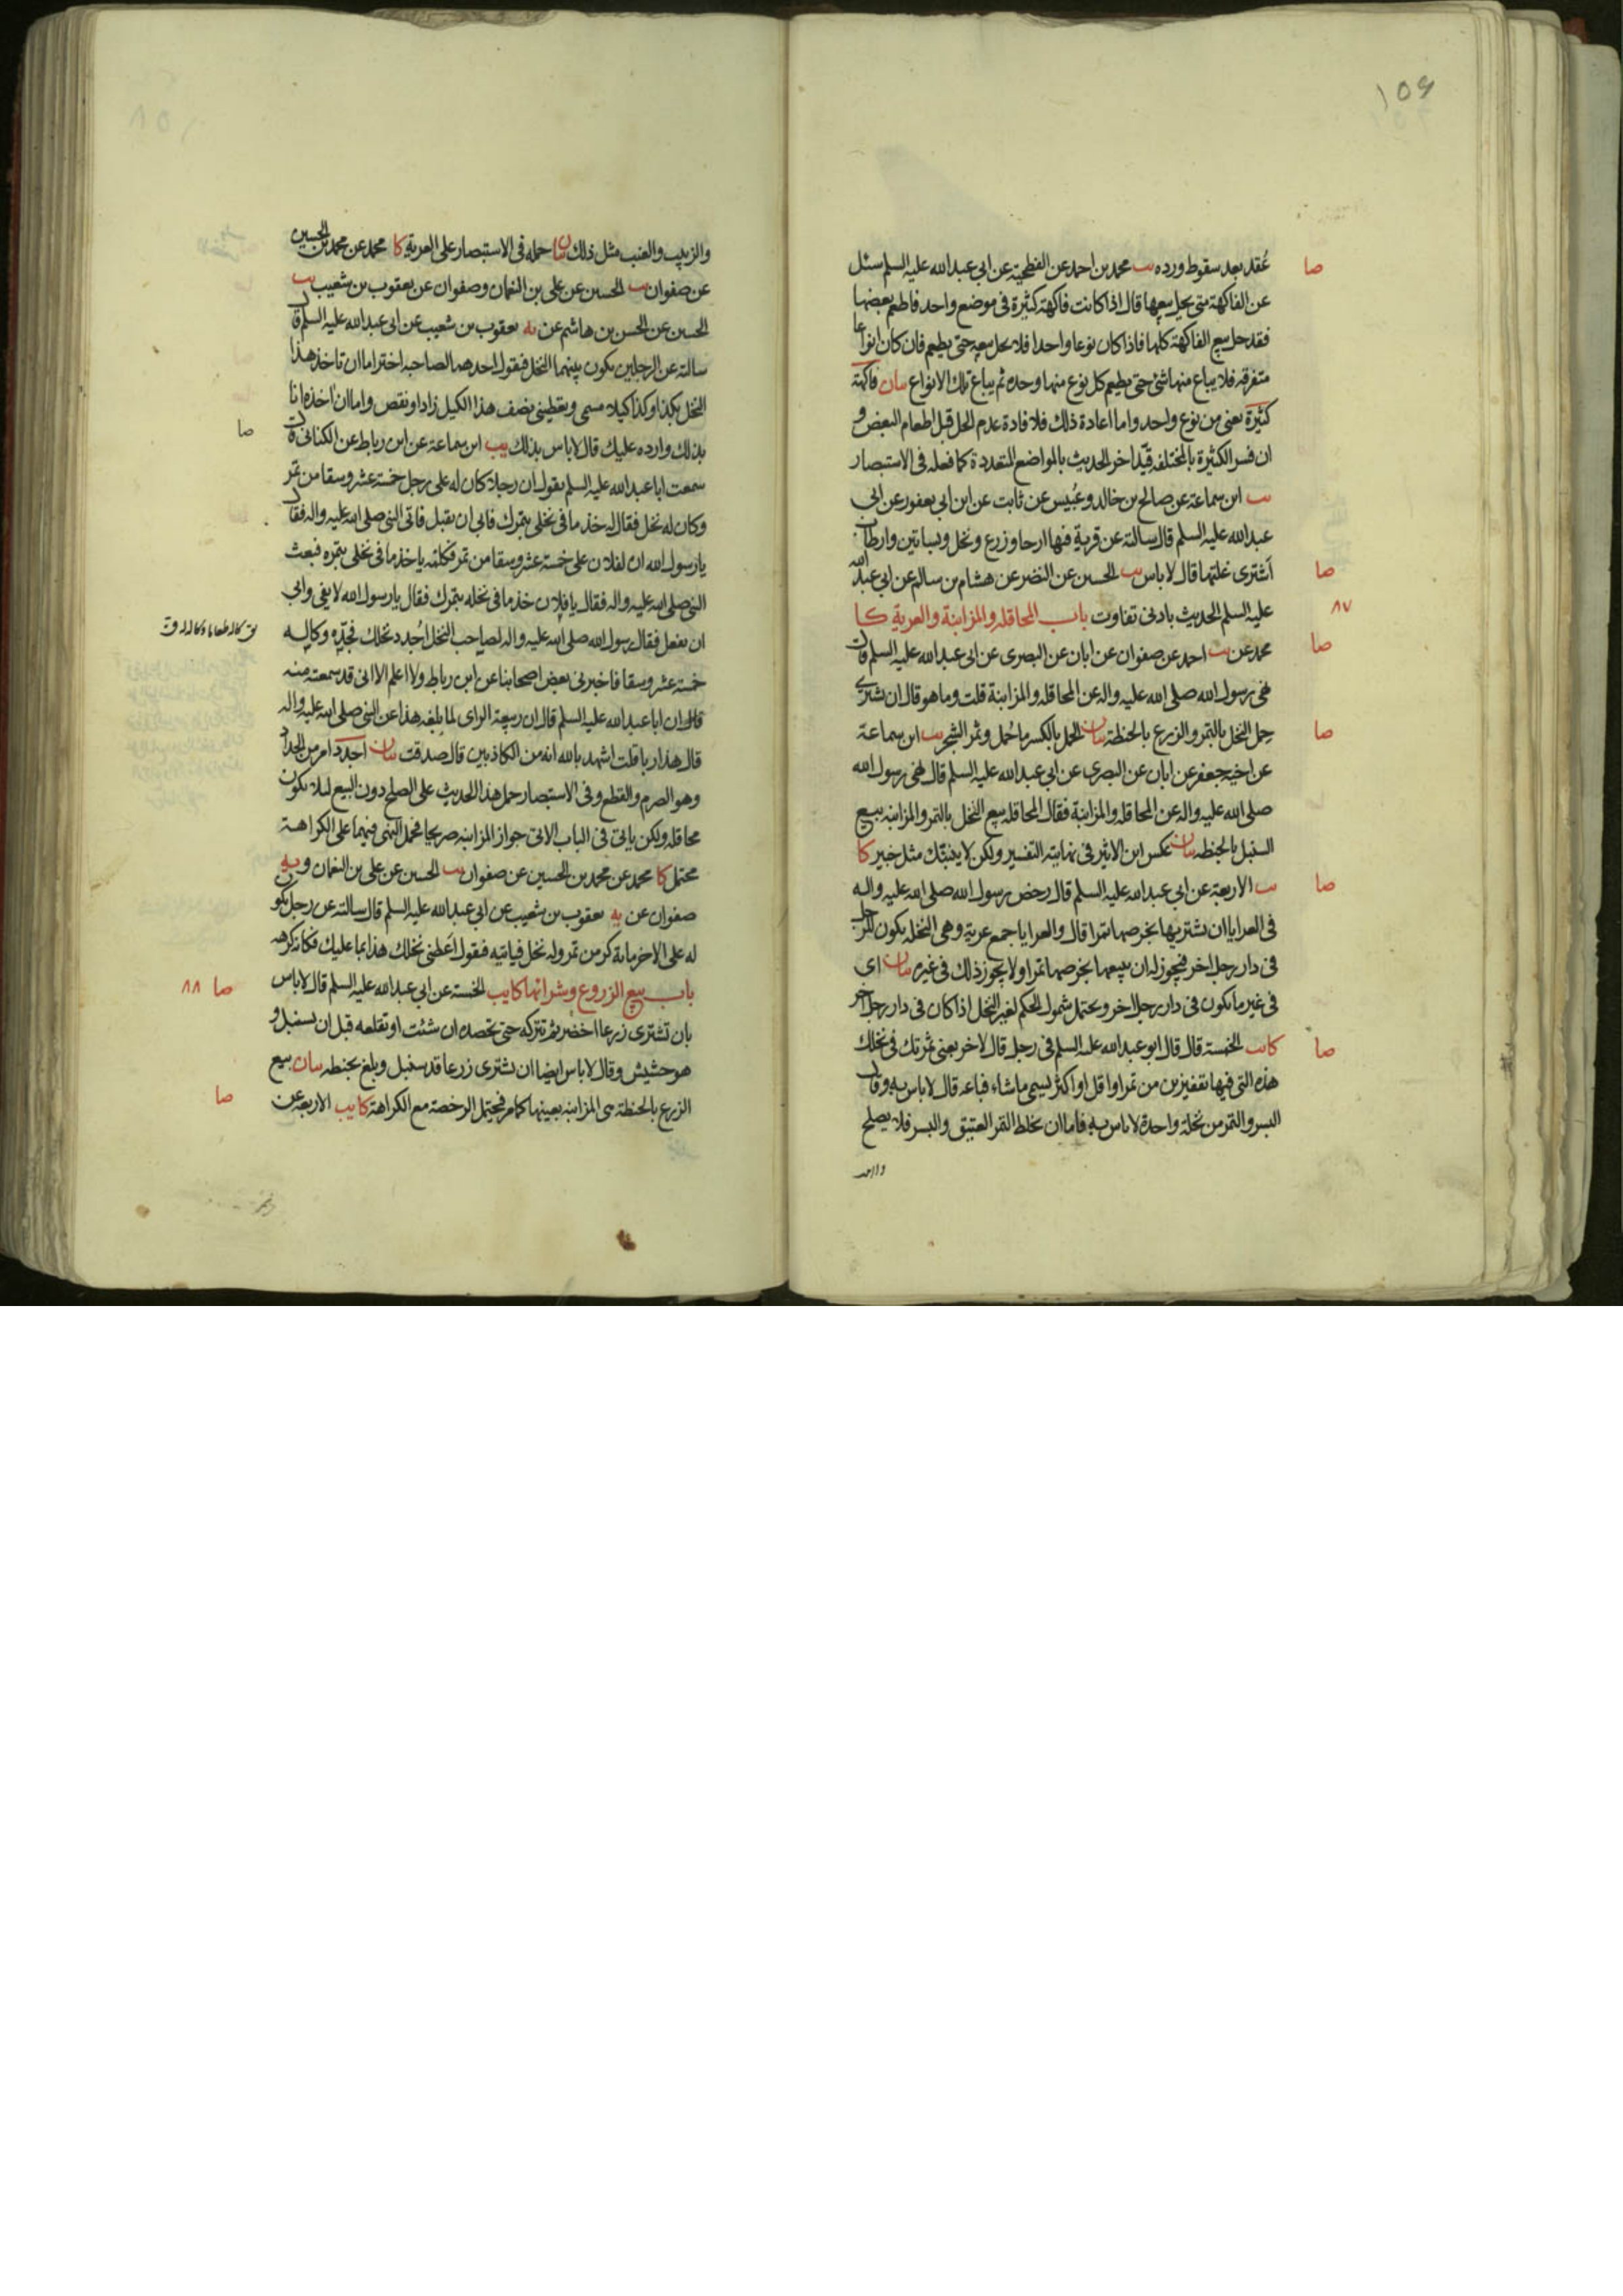 ١٥٤
عُقد بعد سقوط ورده يب محمد بن احمد عن الفطحية عن ابى عبد الله عليه السلم سئل
صا
عن الفاكهة متى يحل بيعها قال اذا كانت فاكهة كثيرة فى موضع واحد فاطعم بعضها
فقد حل بيع الفاكهة كلها فاذا كان نوعا واحدا فلا يحل بيعه حتى يطعم فان كان انواعا
متفرقة فلا يباع منها شئ حتى يطعم كل نوع منها وحده ثم يباع تلك الانواع بيان فاكهة
كثيرة يعنى من نوع واحد واما اعادة ذلك فلافادة عدم الحل قبل اطعام البعض و
ان فسر الكثيرة بالمختلفة قيّد اخر الحديث بالمواضع المتعددة كما فعله فى الاستبصار
يب ابن سماعة عن صالح بن خالد وعُبيس عن ثابت عن ابن ابى يعفور عن ابى
عبد الله عليه السلم قال سالته عن قرية فيها ارحا وزرع ونخل وبساتين وارطاب
اَشترى غلتها قال لا باس يب الحسين عن النضر عن هشام بن سالم عن ابى عبد الله
صا
عليه السلم الحديث بادنى تفاوت باب المحاقلة والمزابنة والعرية كا
٨٧
محمد عن يب احمد عن صفوان عن ابان عن البصرى عن ابى عبد الله عليه السلم قال
صا
نهى رسول الله صلى الله عليه واله عن المحاقلة والمزابنة قلت وما هو قال ان تشترى
حِمل النخل بالتمر والزرع بالحنطة بيان الحمل بالكسر ما حمل وثمر الشجر يب ابن سماعة
صا
عن اخيه جعفر عن ابان عن البصرى عن ابى عبد الله عليه السلم قال نهى رسول الله
صلى الله عليه واله عن المحاقلة والمزابنة فقال المحاقلة بيع النخل بالتمر والمزابنة بيع
السنبل بالحنطة بيان عكس ابن الاثير فى نهايته التفسير ولكن لا ينبّئك مثل خبير كا
يب الاربعة عن ابى عبد الله عليه السلم قال رخص رسول الله صلى الله عليه واله
صا
فى العرايا ان تشتريها بخرصها تمرا قال والعرايا جمع عرية وهى النخلة يكون للرجل
فى دار رجل اخر فيجوز له ان يبيعها بخرصها تمرا ولا يجوز ذلك فى غيره بيان اى
فى غير ما يكون فى دار رجل اخر ويحتمل شمول الحكم لغير النخل اذا كان فى دار رجل اخر
كا يب الخمسة قال قال ابو عبد الله عليه السلم فى رجل قال لاخر بعنى ثمرتك فى نخلك
صا
هذه التى فيها بقفيزين من تمر او اقل او اكثر يسمى ما شاء فباعه قال لا باس به وقال
البسر والتمر من نخلة واحدة لا باس به فاما ان يخلط التمر العتيق والبسر فلا يصلح
والزبيب والعنب مثل ذلك بيان حمله فى الاستبصار على العرية كا محمد عن محمد بن الحسين
عن صفوان يب الحسين عن على بن النعمان وصفوان عن يعقوب بن شعيب يب
الحسين عن الحسن بن هاشم عن يه يعقوب بن شعيب عن ابى عبد الله عليه السلم قال
سالته عن الرجلين يكون بينهما النخل فيقول احدهما لصاحبه اختر اما ان تاخذ هذا
النخل بكذا وكذا كيلا مسمى وتعطينى نصف هذا الكيل زاد او نقص واما ان اخذه انا
بذلك وارده عليك قال لا باس بذلك يب ابن سماعة عن ابن رباط عن الكنانى قال
صا
سمعت ابا عبد الله عليه السلم يقول ان رجلا كان له على رجل خمسة عشر وسقا من تمر
وكان له نخل فقال له خذ ما فى نخلى بتمرك فابى ان يقبل فاتى النبى صلى الله عليه واله فقال
يا رسول الله ان لفلان على خمسة عشر وسقا من تمر فكلمه ياخذ ما فى نخلى بتمره فبعث
النبى صلى الله عليه واله فقال يا فلان خذ ما فى نخله بتمرك فقال يا رسول الله لا يفى وابى
ان يفعل فقال رسول الله صلى الله عليه واله لصاحب النخل اُجدد نخلك فجدّه وكاله
خمسة عشر وسقا فاخبرنى بعض اصحابنا عن ابن رباط ولا اعلم الا انى قد سمعته منه
قال ان ابا عبد الله عليه السلم قال ان ربيعة الراى لما بلغه هذا عن النبى صلى الله عليه واله
قال هذا ربا قلت اشهد بالله انه من الكاذبين قال صدقت بيان اجدد امر من الجداد
وهو الصرم والقطع وفى الاستبصار حمل هذا الحديث على الصلح دون البيع لئلا يكون
محاقلة ولكن ياتى فى الباب الاتى جواز المزابنة صريحا فحمل النهى فيهما على الكراهة
محتمل كا محمد عن محمد بن الحسين عن صفوان يب الحسين عن على بن النعمان و يه
صفوان عن يه يعقوب بن شعيب عن ابى عبد الله عليه السلم قال سالته عن رجل يكون
له على الاخر مائة كر من تمر وله نخل فياتيه فيقول اعطنى نخلك هذا بما عليك فكانه كرهه
باب بيع الزروع وشرائها كا يب الخمسة عن ابى عبد الله عليه السلم قال لا باس
صا ٨٨
بان تشترى زرعا اخضر ثم تتركه حتى تحصده ان شئت او تقلعه قبل ان يسنبل و
هو حشيش وقال لا باس ايضا ان تشترى زرعا قد سنبل وبلغ بحنطة بيان بيع
الزرع بالحنطة هى المزابنة بعينها كما مر فيحتمل الرخصة مع الكراهة كا يب الاربعة عن
صا